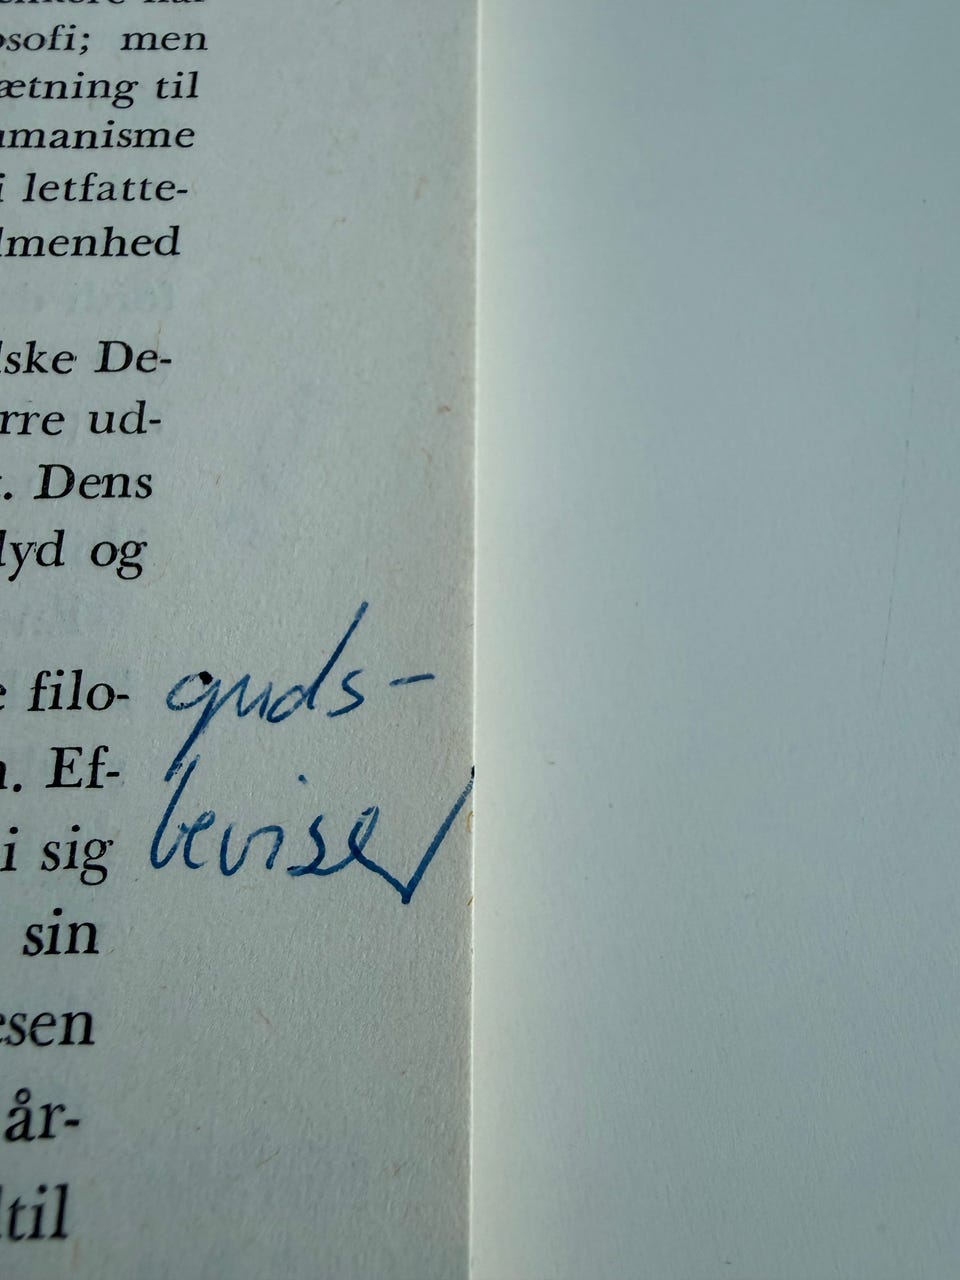 osofi; men
ætning til
umanisme
i letfatte-
lmenhed
lske De-
rre ud-
. Dens
lyd og
filo-
guds-
. Ef-
beviser
i sig
sin
esen
år-
til